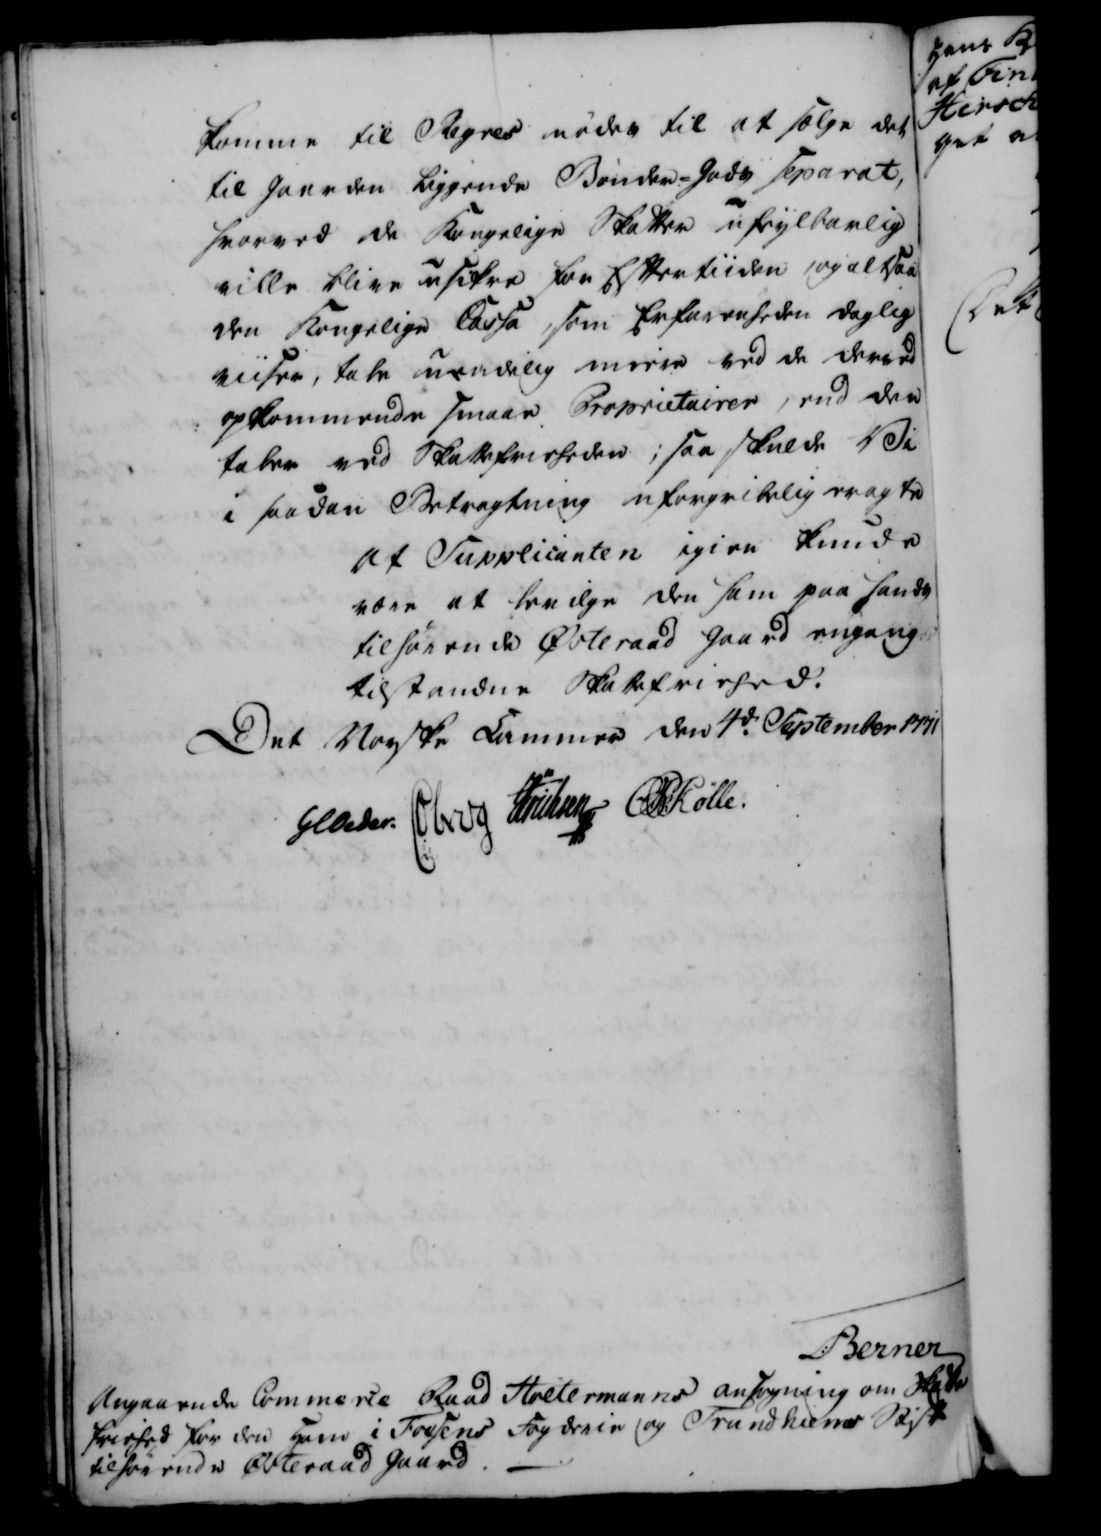 komme til Regres nødes til at sælge det
til Gaarden liggende Bønder-Gods separat,
hvorved de Kongelige Skatter ufeylbarlig
ville blive usikre for Eftertiiden, og altsaa
den Kongelige Cassa, som Erfarenheden daglig
viiser, tabe uendelig meere ved de derved
opkommende smaae Proprietairer, end den
taber ved Skattefriheden; saa skulde Vi
i saadan Betragtning uforgribelig eragte
at Supplicanten igien kunde
være at bevilge den ham paa hands
tilhørende Østeraad Gaard engang
tilstandne Skattefriehed.
Det Norske Cammer den 4d. September 1771
GCOeder. Oberg Erichsen Kölle.
Berner
Angaaende Commerce Raad Hoetermanns ansøgning om Skatte
friehed for den ham i Fosens Fogderie og Trundhiems Stift
tilhørende Østeraad Gaard.
Hans
af Fin
Hersch
get
Dette